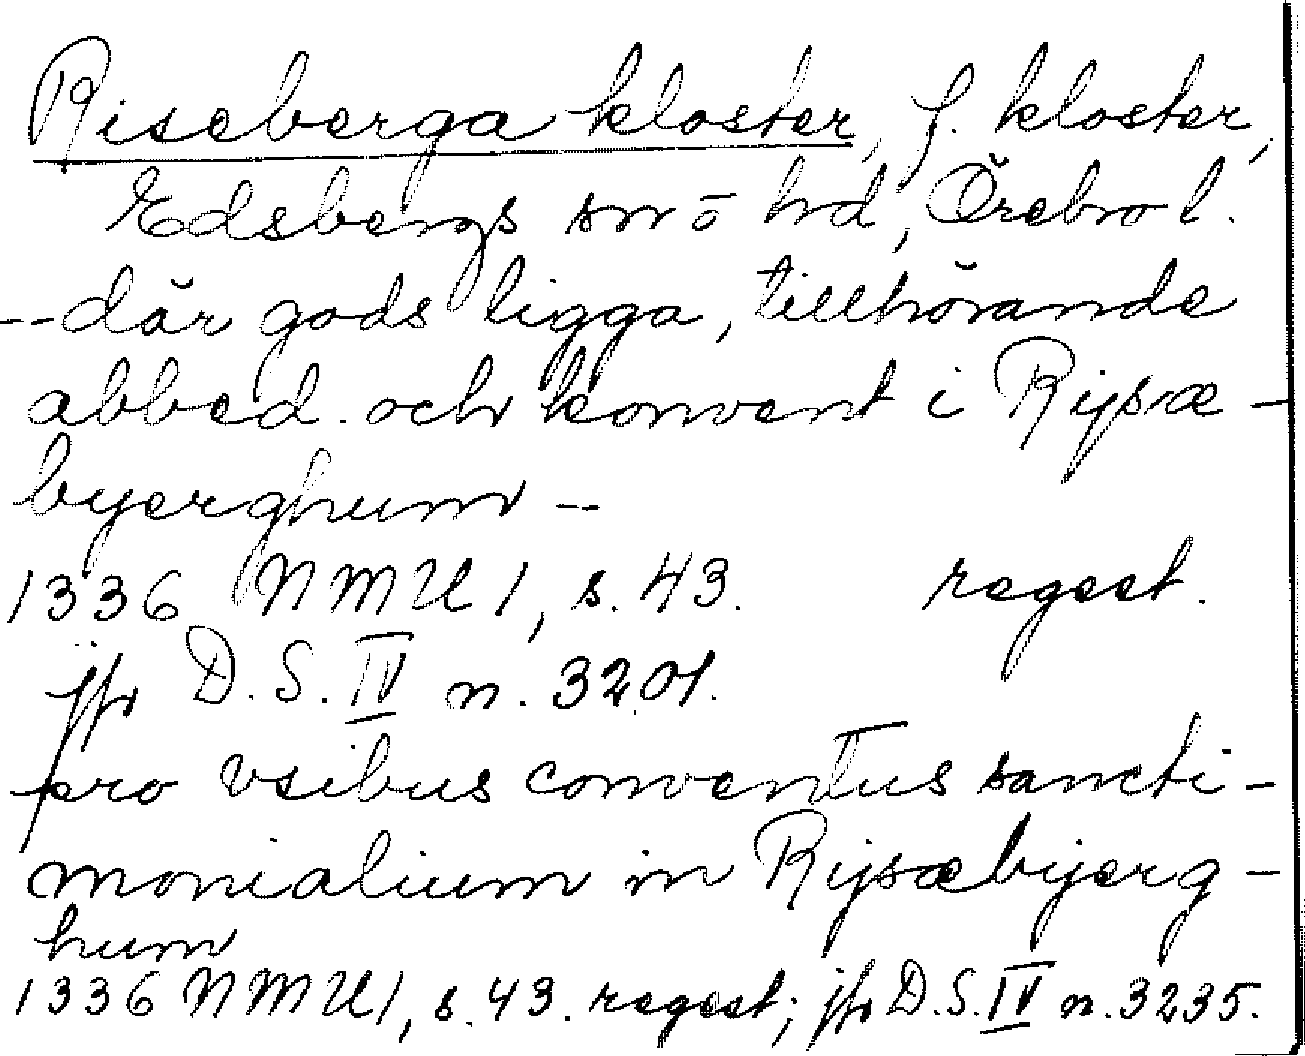 Riseberga kloster, f. kloster,
Edsbergs sn o hd, Örebro l.
--där gods ligga, tillhörande
abbed. och konvent i Rijsæ-
byerghum--
1336 NMU 1, s. 43. regest.
jfr D.S. IV n. 3201.
pro vsibus conventus sancti-
monialium in Rijsæbyerg-
hum
1336 NMU 1, s. 43. regest; jfr D.S. IV n. 3235.